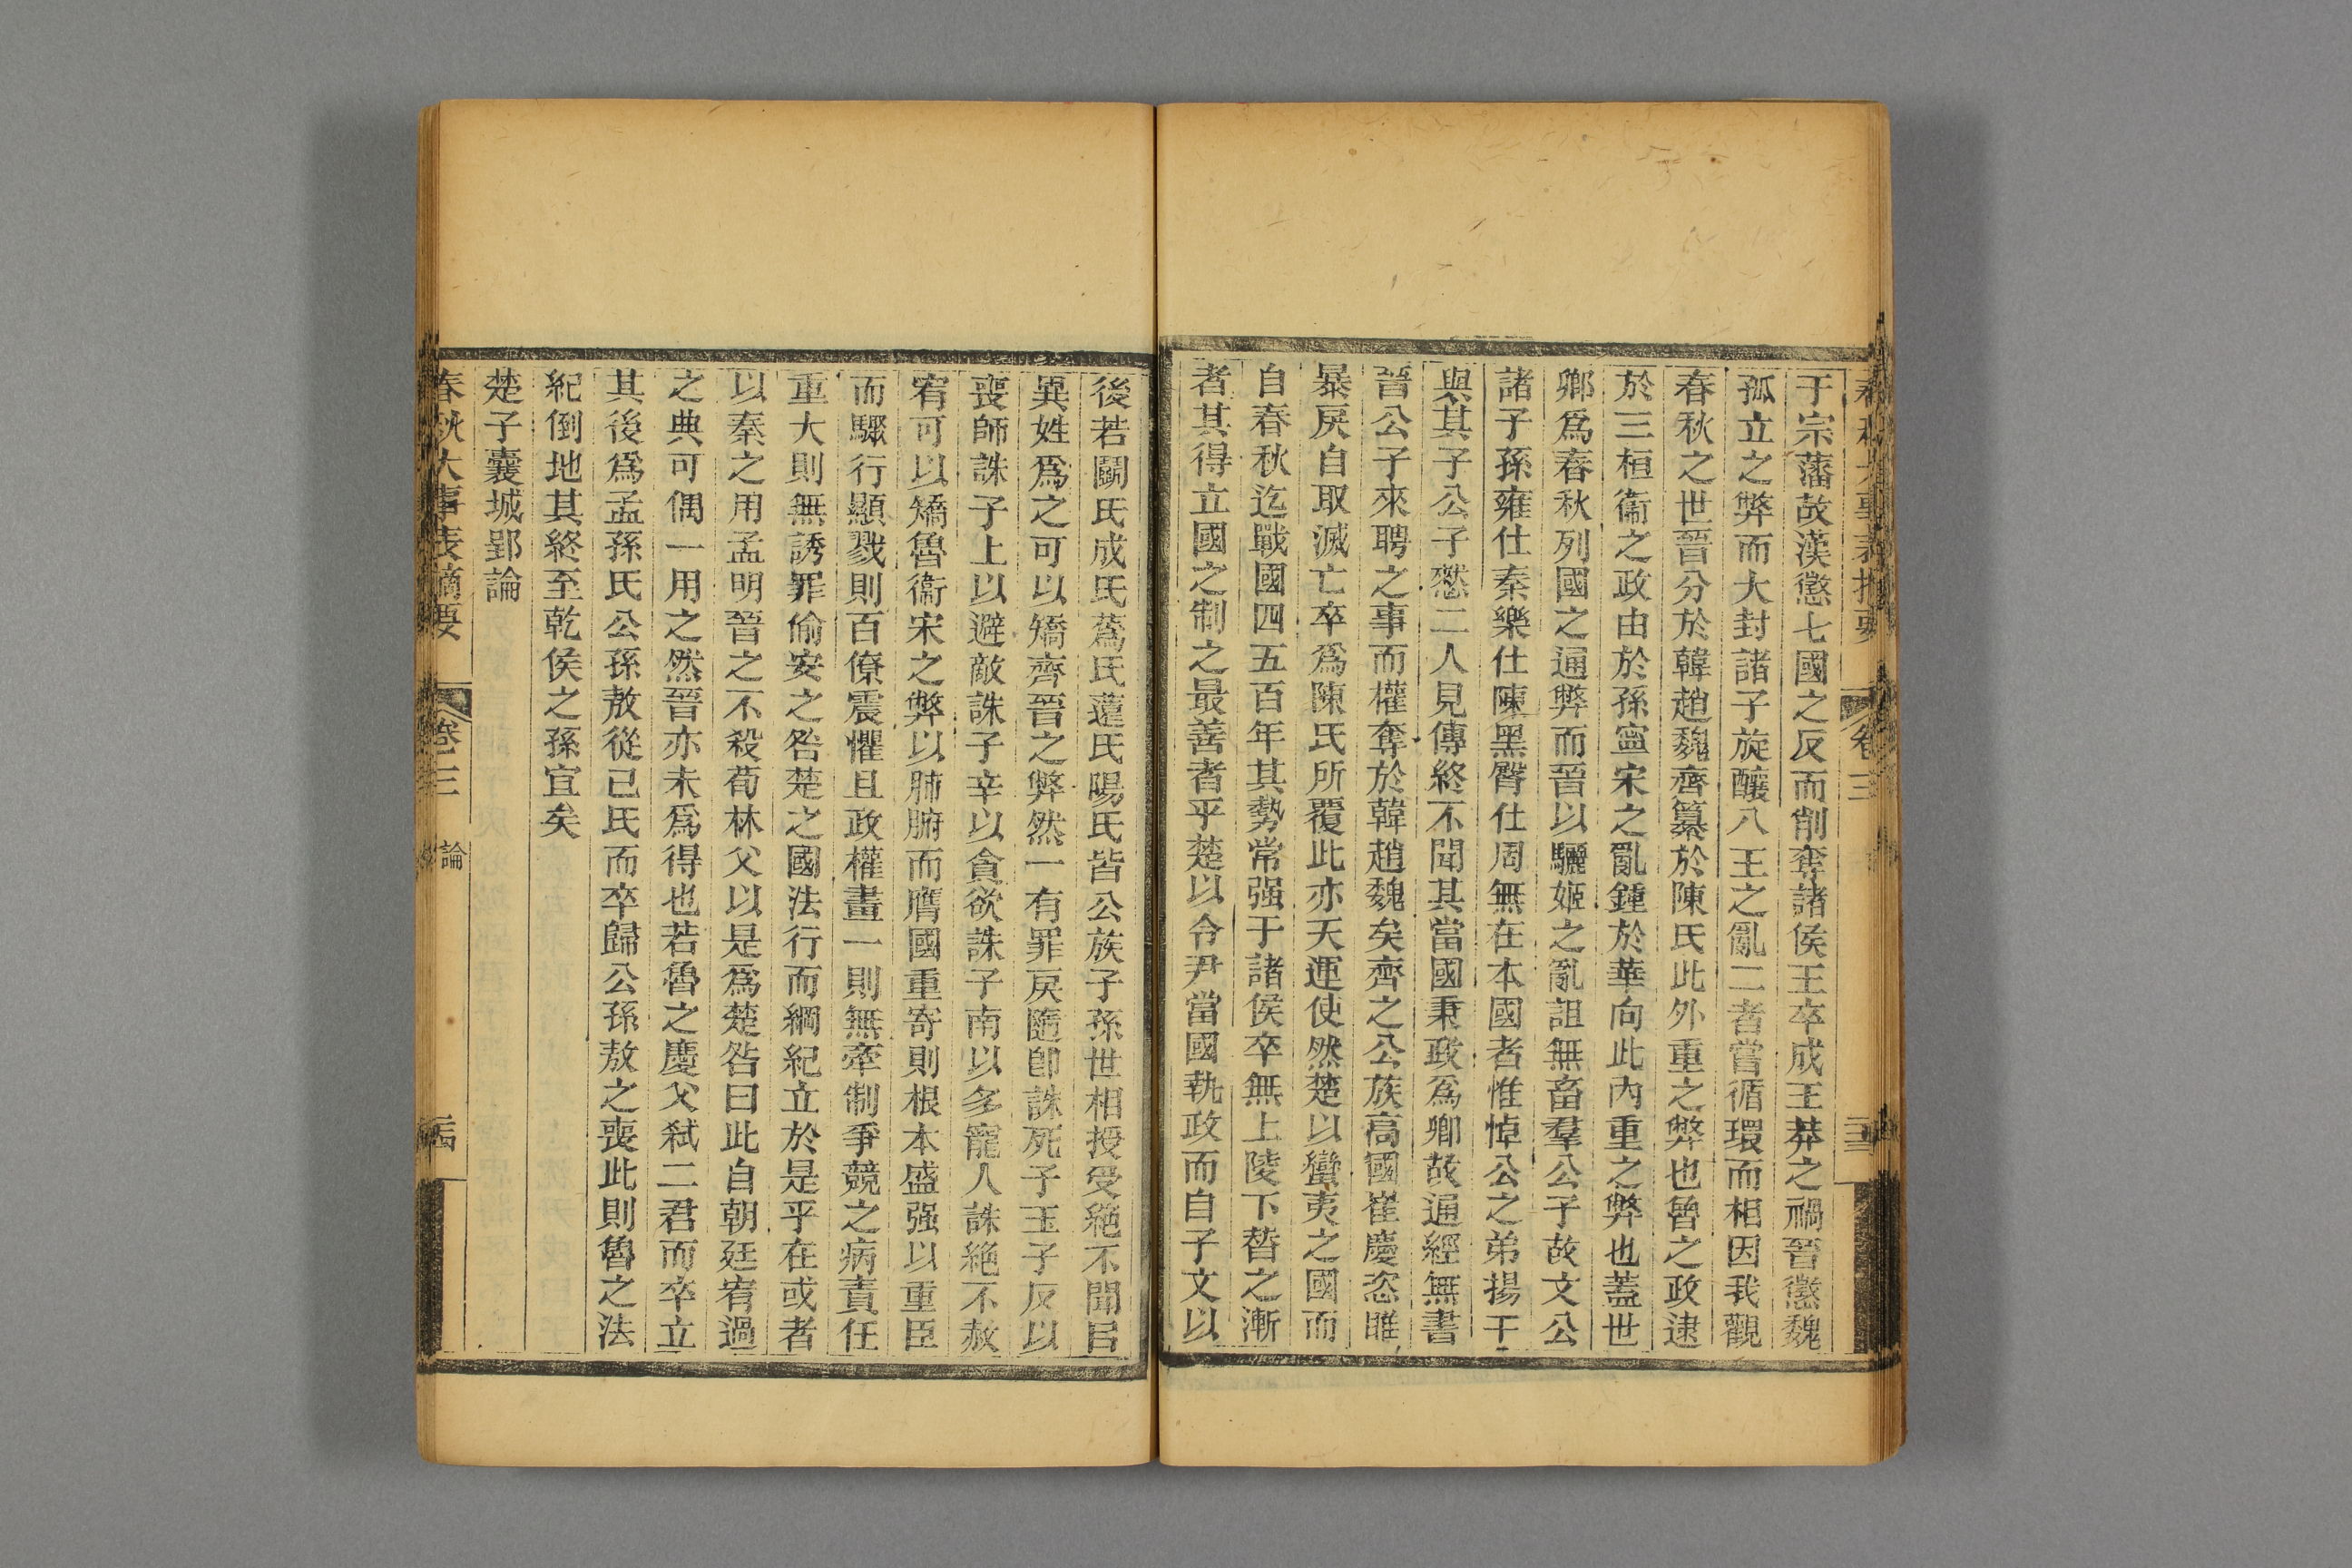 春秋大事表摘要
卷三
于宗藩故漢懲七國之反而削奪諸侯王卒成王莽之禍晉懲魏
孤立之弊而大封諸子旋釀八王之亂二者嘗循環而相因我觀
春秋之世晉分於韓趙魏齊簒於陳氏此外重之弊也魯之政逮
於三桓衞之政由於孫甯宋之亂鍾於華向此內重之弊也蓋世
卿爲春秋列國之通弊而晉以驪姬之亂詛無畜羣公子故文公
諸子孫雍仕秦樂仕陳黑臀仕周無在本國者惟悼公之弟揚干
與其子公子憖二人見傳終不聞其當國秉政爲卿故通經無書
晉公子來聘之事而權奪於韓趙魏矣齊之公族高國崔慶恣睢
暴戾自取滅亡卒爲陳氏所覆此亦天運使然楚以蠻夷之國而
自春秋迄戰國四五百年其勢常强于諸侯卒無上陵下替之漸
者其得立國之制之最善者乎楚以令尹當國執政而自子文以
後若鬭氏成氏蒍氏薳氏陽氏皆公族子孫世相授受絕不聞呂
異姓爲之可以矯齊晉之弊然一有罪戾隨卽誅死子玉子反以
喪師誅子上以避敵誅子辛以貪欲誅子南以多寵人誅絕不赦
宥可以矯魯衞宋之弊以肺腑而膺國重寄則根本盛强以重臣
而驟行顯戮則百僚震懼且政權畫一則無牽制爭競之病責任
重大則無諉罪偷安之咎楚之國法行而綱紀立於是乎在或者
以秦之用孟明晉之不殺荀林父以是爲楚咎曰此自朝廷宥過
之典可偶一用之然晉亦未爲得也若魯之慶父弒二君而卒立
其後爲孟孫氏公孫敖從己氏而卒歸公孫敖之喪此則魯之法
紀倒地其終至乾侯之孫宜矣
楚子囊城郢論
春秋大事表摘要
卷三
論